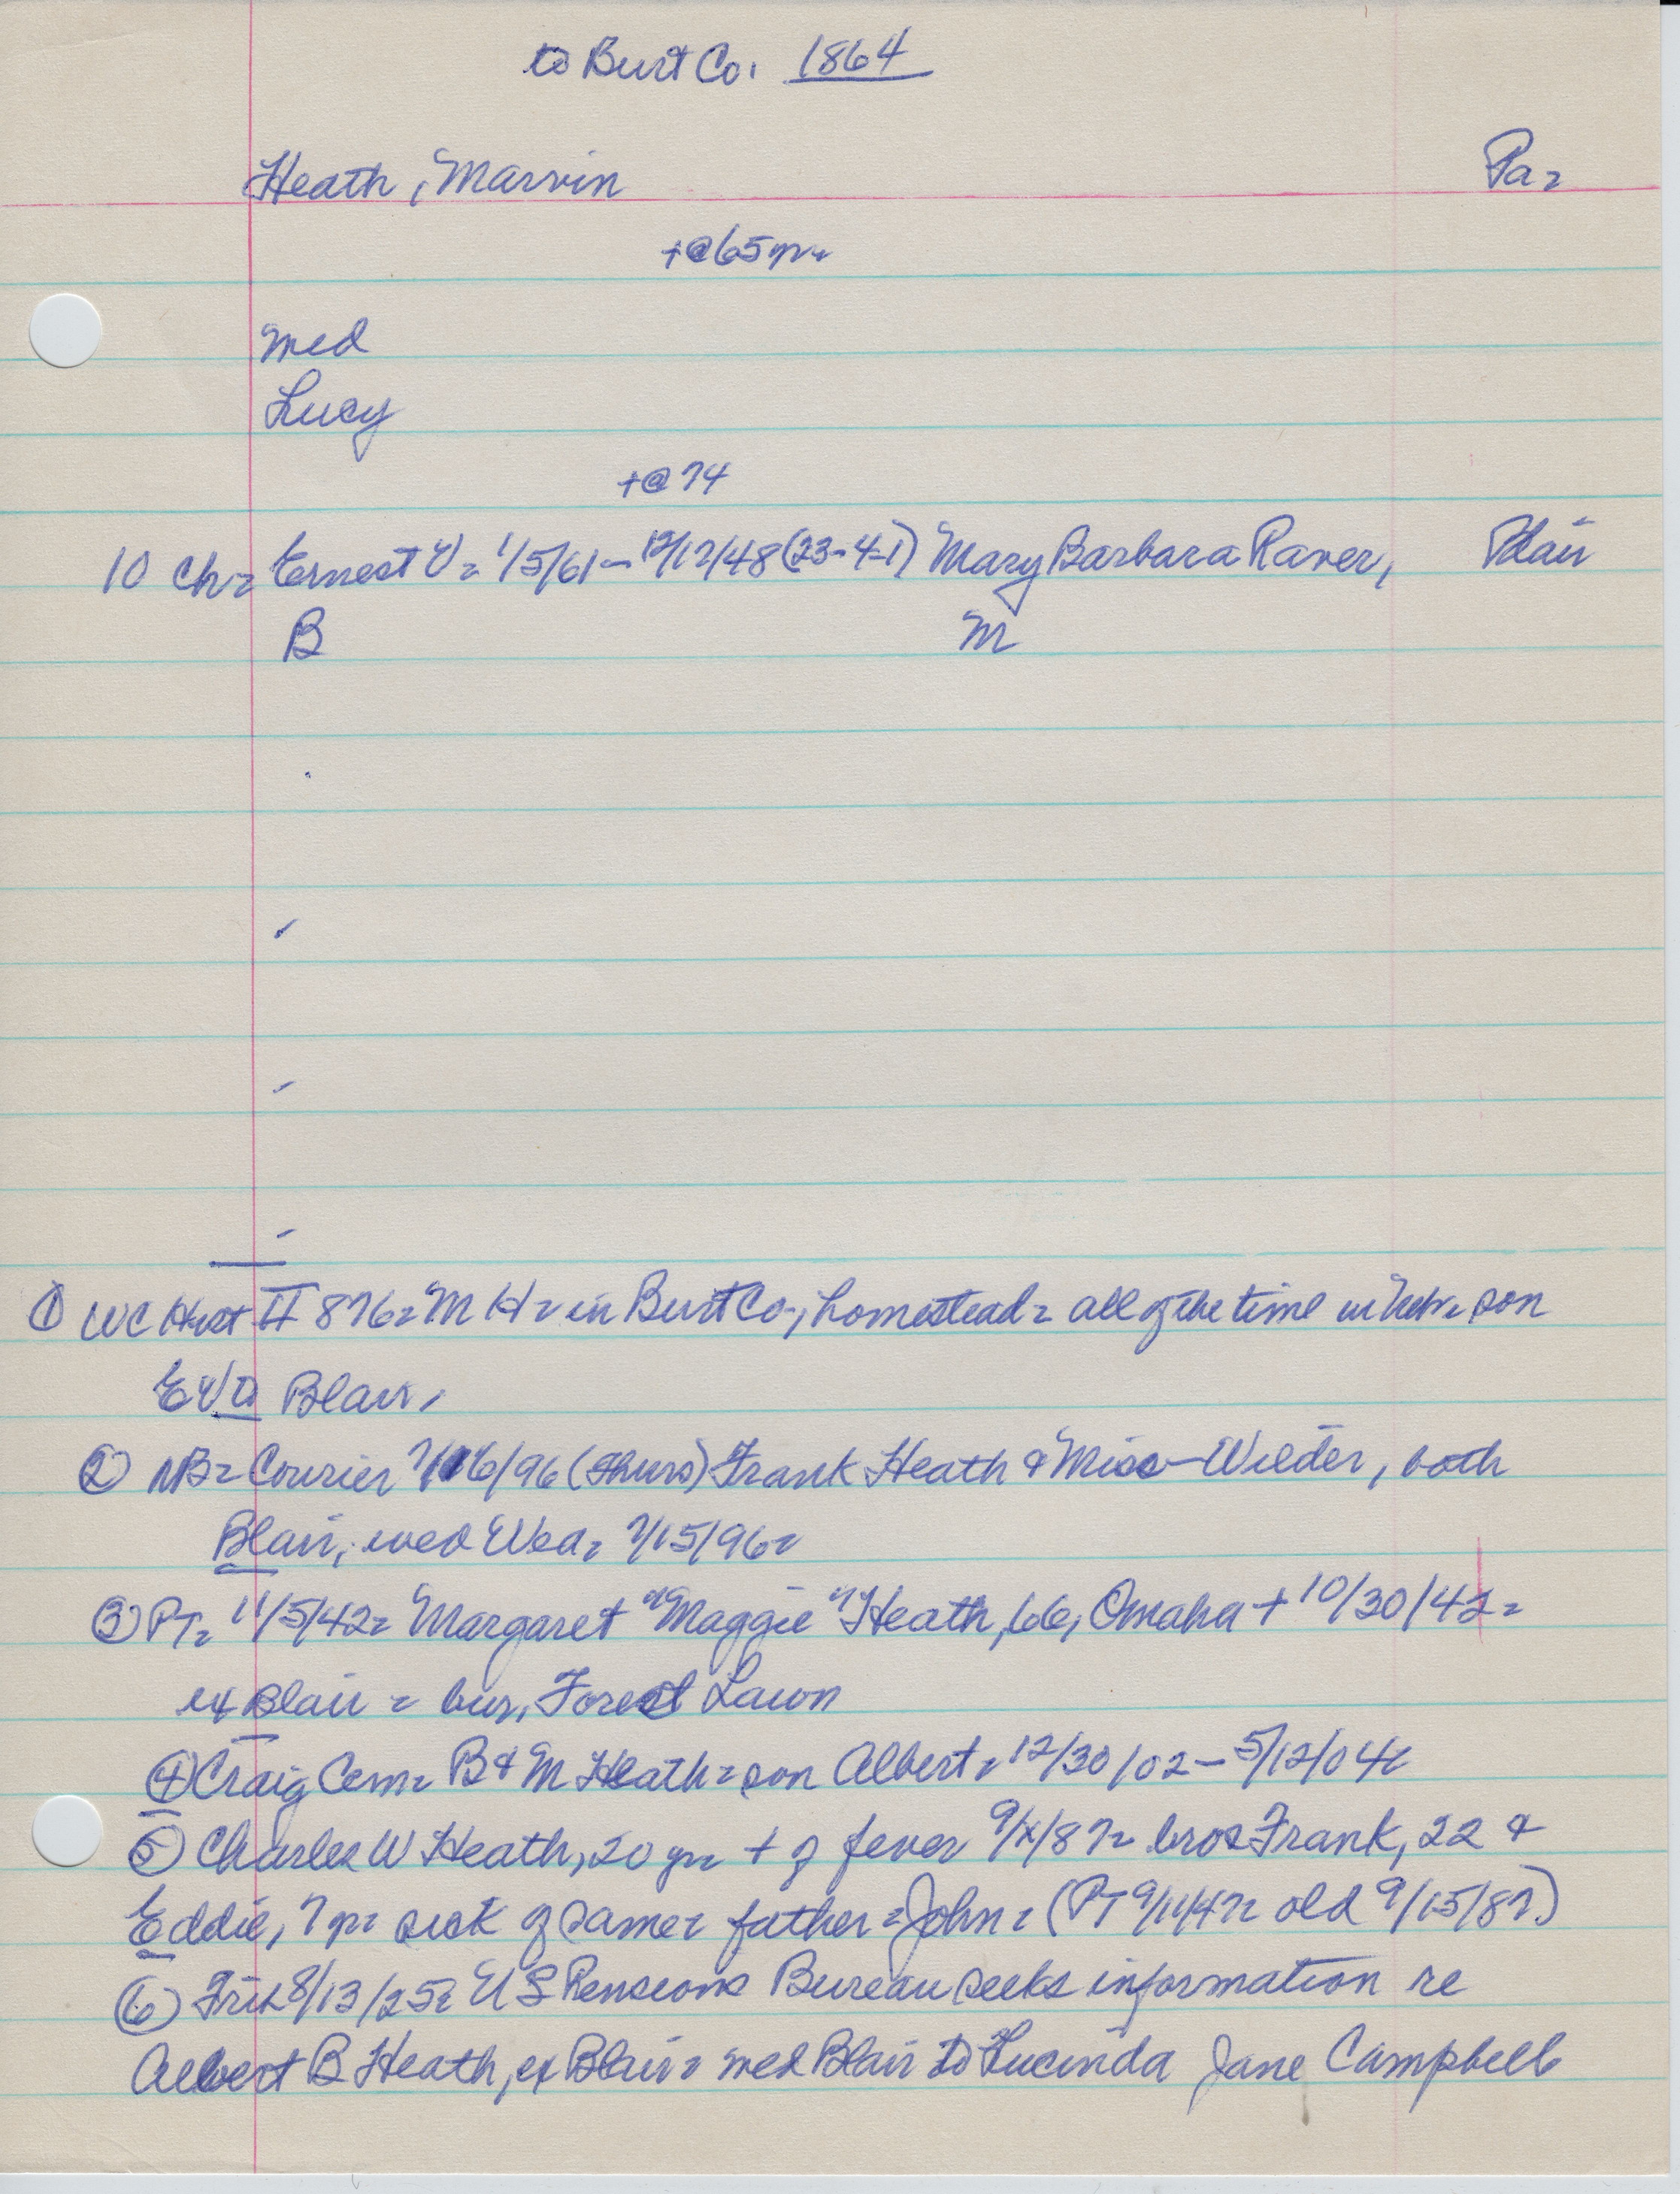 to Burt Co. 1864
Heath, Marvin Pa.
+@65 yr.
med
Lucy
+@74
10 ch. Ernest V. 1/5/61-12/12/48 (23-4-1) Mary Barbara Raver, Blair
B M
① WC Hist II 876. M H. in Burt Co., homestead. all of the time in Nebr. son
EV @ Blair,
② NB. Courier 7/16/96 (Thurs) Frank Heath & Miss - Wilder, both
Blair, wed Wed. 7/15/96.
③ PT. 11/5/42. Margaret "Maggie" Heath, 66, Omaha + 10/30/42.
ex Blair. bur. Forest Lawn
④ Craig Cem. B & M Heath. son Albert. 12/30/02-5/12/04.
⑤ Charles W Heath, 20 yr. + of fever 9/x/87. bros Frank, 22 &
Eddie, 7 yr. sick of same. father. John. (PT 9/11/47. old 9/15/87.)
⑥ Fri. 8/13/25. US Pensions Bureau seeks information re
Albert B Heath, ex Blair. med Blair to Lucinda Jane Campbell